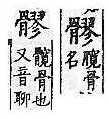 髎
髖骨
名
髎
髖骨也
又音聊